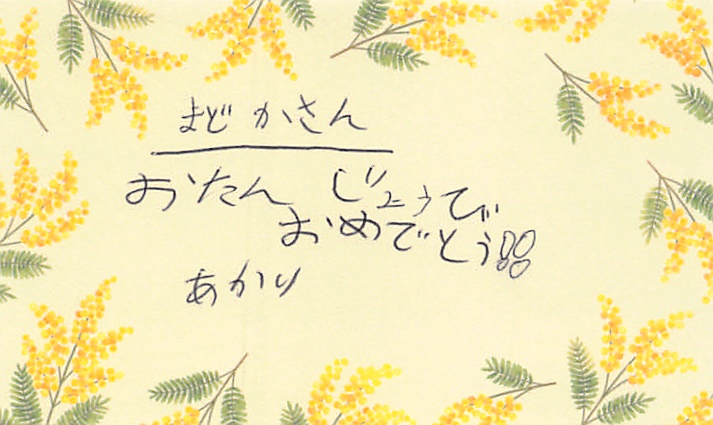 まどかさん
おたんじょうび
おめでとう!!
あかり